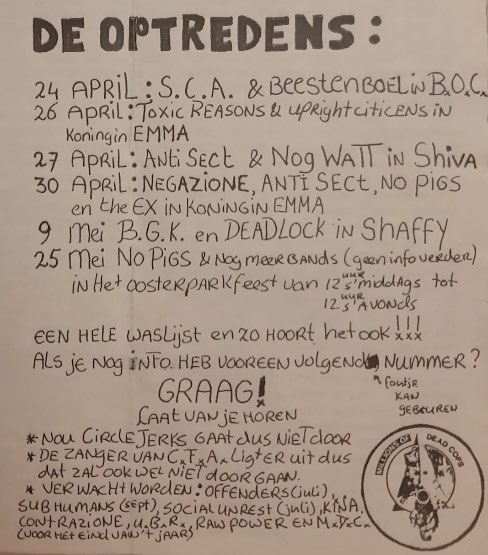 DE OPTREDENS:
24 APRIL: S.C.A. & BEESTENBOEL in B.O.C.
26 April: TOXIC REASONS & UPRIGHT CITICENS in
Koningin EMMA
27 April: Anti Sect & Nog WATT in Shiva
30 April: NEGAZIONE, ANTI SECT, NO PIGS
en the EX in KONINGIN EMMA
9 Mei B.G.K. en DEADLOCK in Shaffy
25 Mei NO PIGS & NOG MEER BANDS (geen info verder)
in Het OOSTERPARKfeest van 12 uur s'middags tot
12 uur s'Avonds
EEN HELE WASLIJST en ZO HOORT het ook!!!
ALS je NOG INFO HEB VOOR EEN VOLGEND NUMMER?
foutje
KAN
GEBEUREN
GRAAG!
LAAT VAN je HOREN
* NOU CIRCLE JERKS GAAT dus NIET door
* DE ZANGER VAN C.F.A. Ligt ER uit dus
dat ZAL OOK WEL NIET DOOR GAAN.
* VERWACHT WORDEN: OFFENDERS (juli),
SUBHUMANS (SEPT), SOCIAL UNREST (juli), KINA,
CONTRAZIONE, U.B.R., RAW POWER EN M.D.C.
(VOOR HET EIND VAN 't JAAR)
MILLIONS OF DEAD COPS